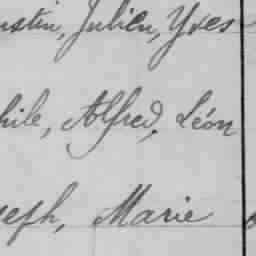 ustin, Julien, Yves
hile, Alfred, Léon
seph, Marie